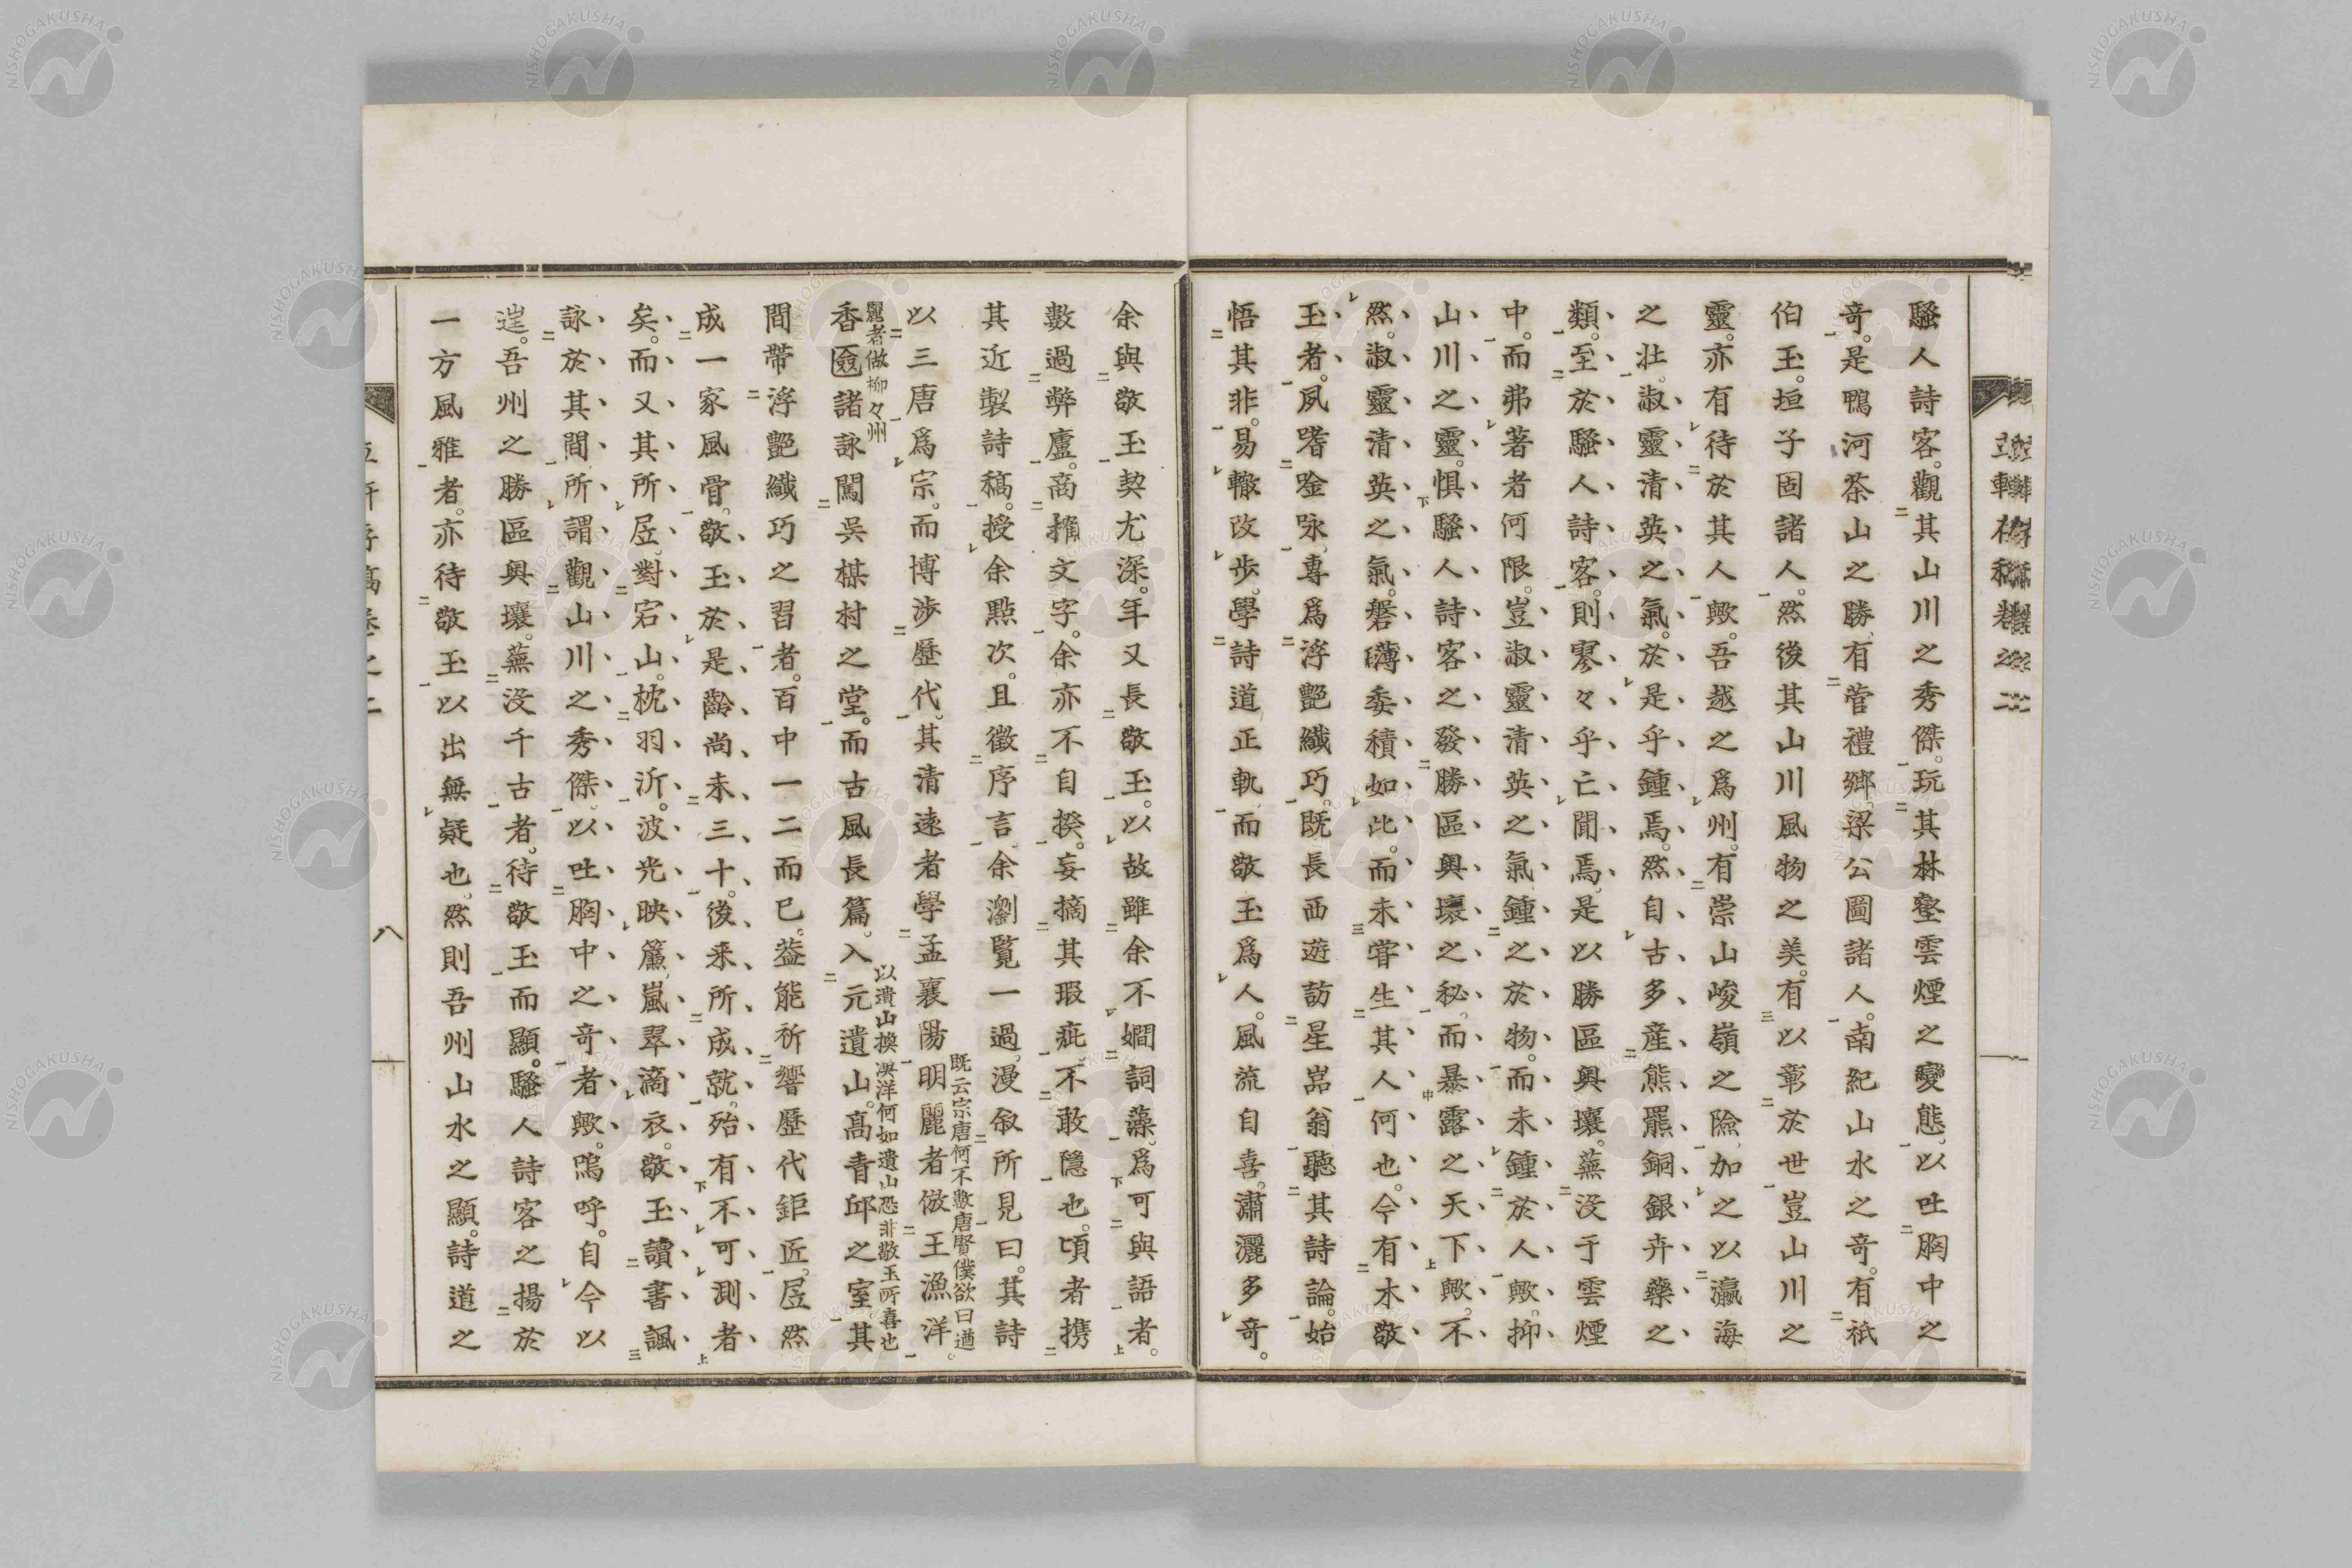 騷人詩客。觀其山川之秀傑。玩其林壑雲煙之變態。以吐胸中之
奇。是鴨河茶山之勝。有菅禮鄉梁公圖諸人。南紀山水之奇。有祇
伯玉。垣子固諸人。然後其山川風物之美。有以彰於世。豈山川之
靈。亦有待於其人歟。吾越之爲州。有崇山峻嶺之險。加之以瀛海
之壯。淑靈清英之氣。於是乎鍾焉。然自古多産熊羆銅銀卉藥之
類。至於騷人詩客。則寥々乎亡聞焉。是以勝區奧壤。蕪没于雲煙
中。而弗著者何限。豈淑靈清英之氣鍾之於物。而未鍾於人歟。抑
山川之靈。惧騷人詩客之發勝區奧壤之秘。而暴露之天下歟。不
然。淑靈清英之氣。磐礴委積如此。而未甞生其人何也。今有木敬
玉者。夙嗜唫咏。專爲浮艷纎巧。既長西遊訪星巖翁。聽其詩論。始
悟其非。易轍改步。學詩道正軌。而敬玉爲人。風流自喜。瀟灑多奇。
余與敬玉契尤深。年又長敬玉。以故雖余不嫺詞藻。爲可與語者。
數過弊廬。商搉文字。余亦不自揆。妄摘其瑕疵。不敢隱也。頃者携
其近製詩稿。授余點次。且徵序言。余瀏覧一過。漫叙所見曰。其詩
以三唐爲宗。而博涉歷代。其清遠者學孟襄陽。明麗者倣王漁洋。
既云宗唐何不數唐賢僕欲曰遒
麗者倣柳々州
香奩諸詠闖吳楳村之堂。而古風長篇。入元遺山。高青邱之室。其
以遺山換漁洋何如遺山恐非敬玉所喜也
間帶浮艷纎巧之習者。百中一二而已。益能祈響歷代鉅匠。居然
成一家風骨。敬玉於是。齡尚未三十。後来所成就。殆有不可測者
矣。而又其所居。對宕山。枕羽沂。波光映簾。嵐翠滴衣。敬玉讀書諷
詠於其間。所謂觀山川之秀傑。以吐胸中之奇者歟。嗚呼。自今以
徃。吾州之勝區奧壤。蕪没千古者。待敬玉而顯。騷人詩客之揚於
一方風雅者。亦待敬玉以出無疑也。然則吾州山水之顯。詩道之
八